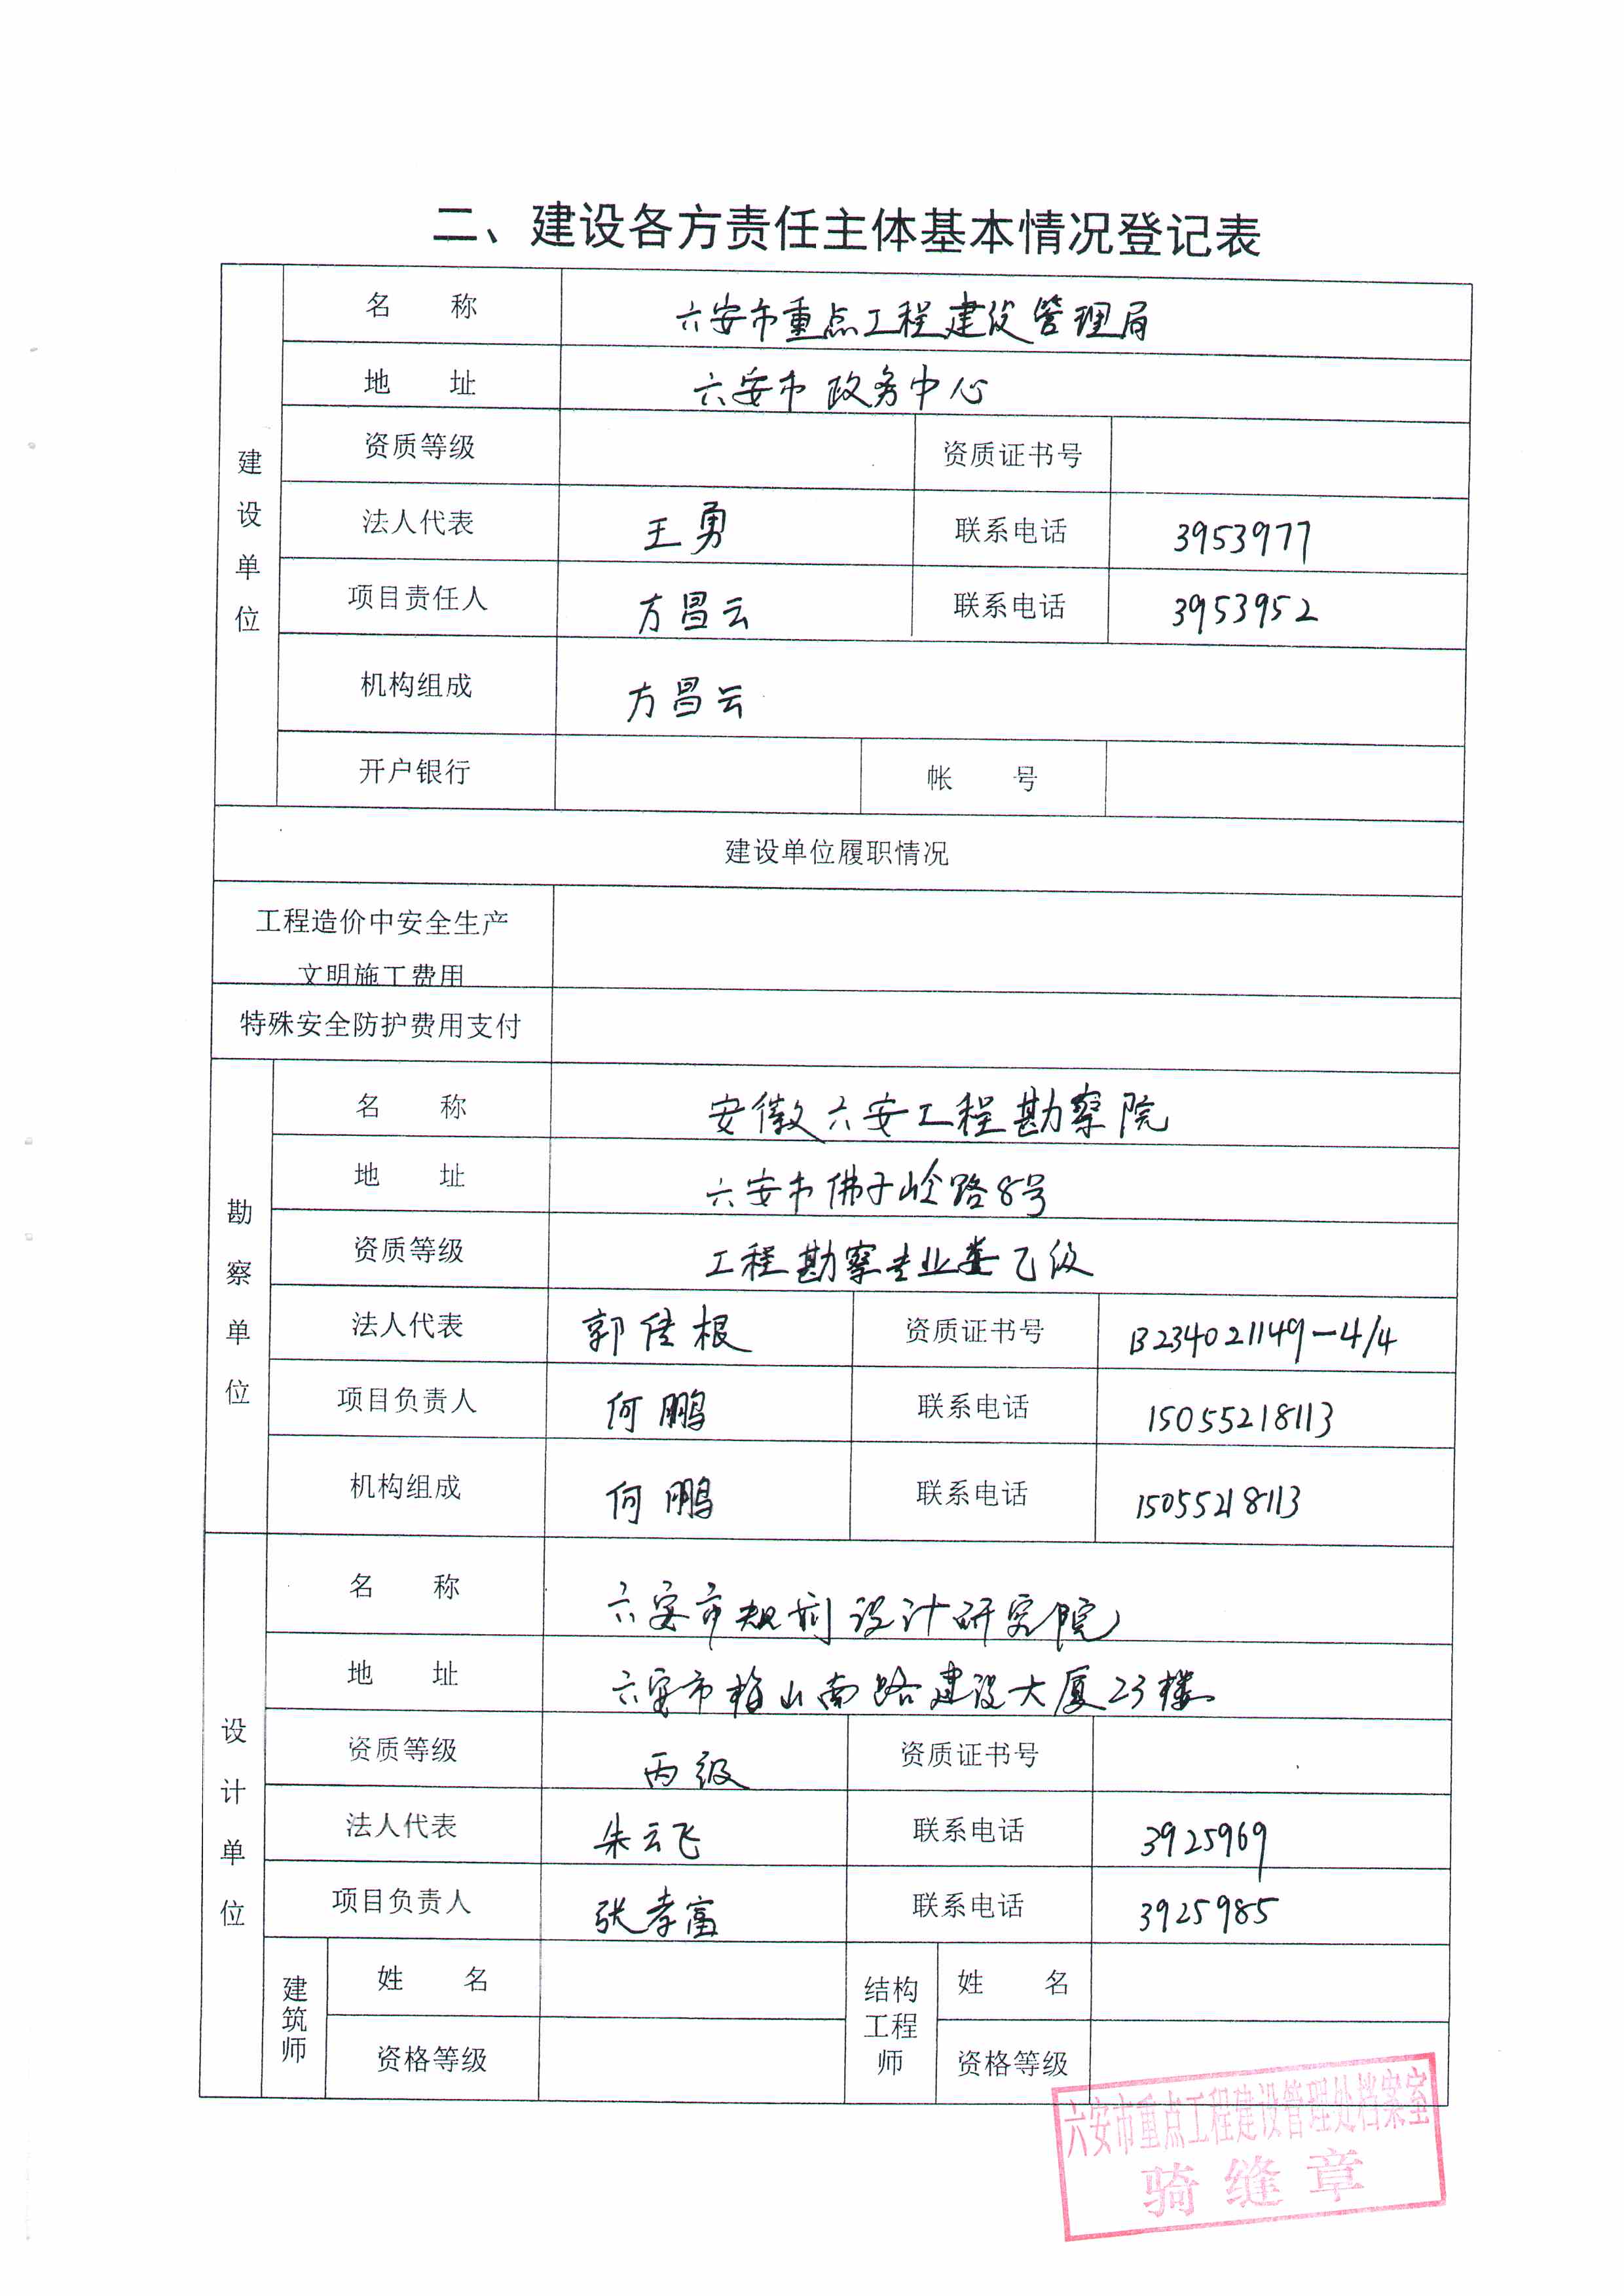 二、建设各方责任主体基本情况登记表
建设单位
名 称 六安市重点工程建设管理局
地 址 六安市政务中心
资质等级 资质证书号
法人代表 王勇 联系电话 3953977
项目责任人 方昌云 联系电话 3953952
机构组成 方昌云
开户银行 帐 号
建设单位履职情况
工程造价中安全生产
文明施工费用
特殊安全防护费用支付
勘察单位
名 称 安徽六安工程勘察院
地 址 六安市佛子岭路8号
资质等级 工程勘察专业类乙级
法人代表 郭佳根 资质证书号 B234021149-4/4
项目负责人 何鹏 联系电话 15055218113
机构组成 何鹏 联系电话 15055218113
设计单位
名 称 六安市规划设计研究院
地 址 六安市梅山南路建设大厦23楼
资质等级 丙级 资质证书号
法人代表 朱云飞 联系电话 3925969
项目负责人 张孝富 联系电话 3925985
建筑师 姓 名 结构工程师 姓 名
资格等级 资格等级
六安市重点工程建设管理处档案室
骑缝章